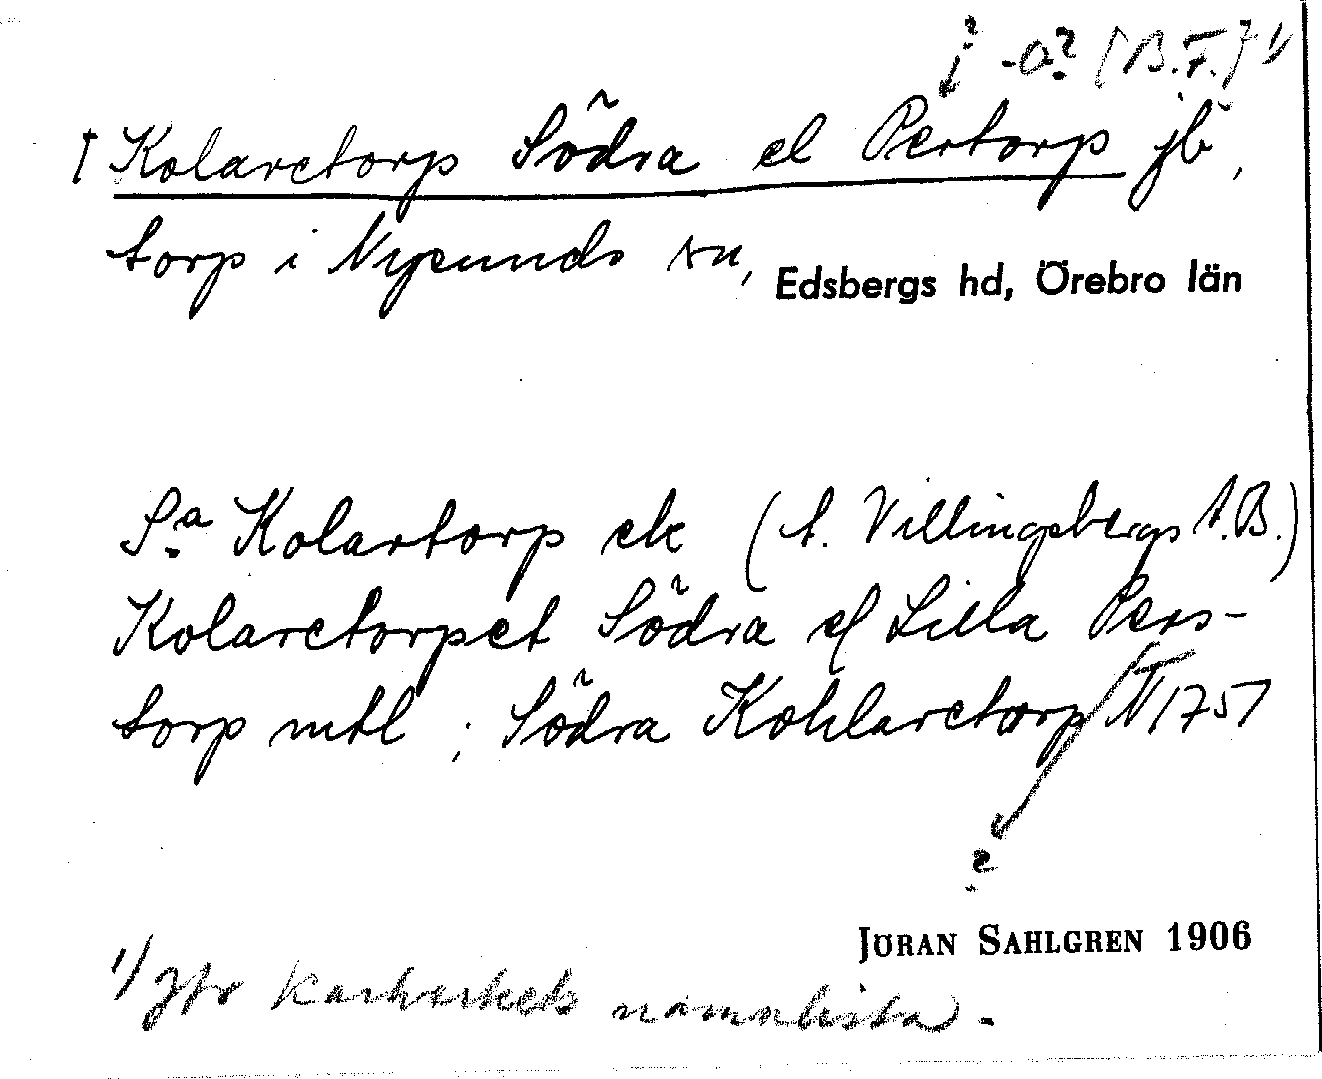 ? -a? [B.F.] 1/
† Kolaretorp Södra el Pertorp jb,
torp i Nysunds sn, Edsbergs hd, Örebro län
Sa. Kolartorp ek (t. Villingsbergs A.B.)
Kolaretorpet Södra el Lilla Pers-
torp mtl ; Södra Kohlaretorp 1751
?
JÖRAN SAHLGREN 1906
1/ Jfr Kartverkets namnlista.-